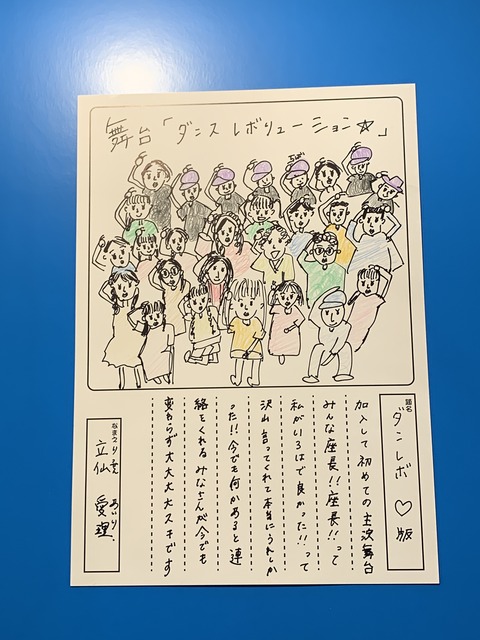 舞台「ダンスレボリューション☆」
題名
ダンレボ♡版
加入して初めての主演舞台
みんな座長!!座長!!って
私がいろはで良かった!!って
沢山言ってくれて本当にうれしか
った!!今でも何かあると連
絡をくれるみなさんが今でも
変わらず大大大大スキです
なまえ
りっせん あいり
立仙 愛理